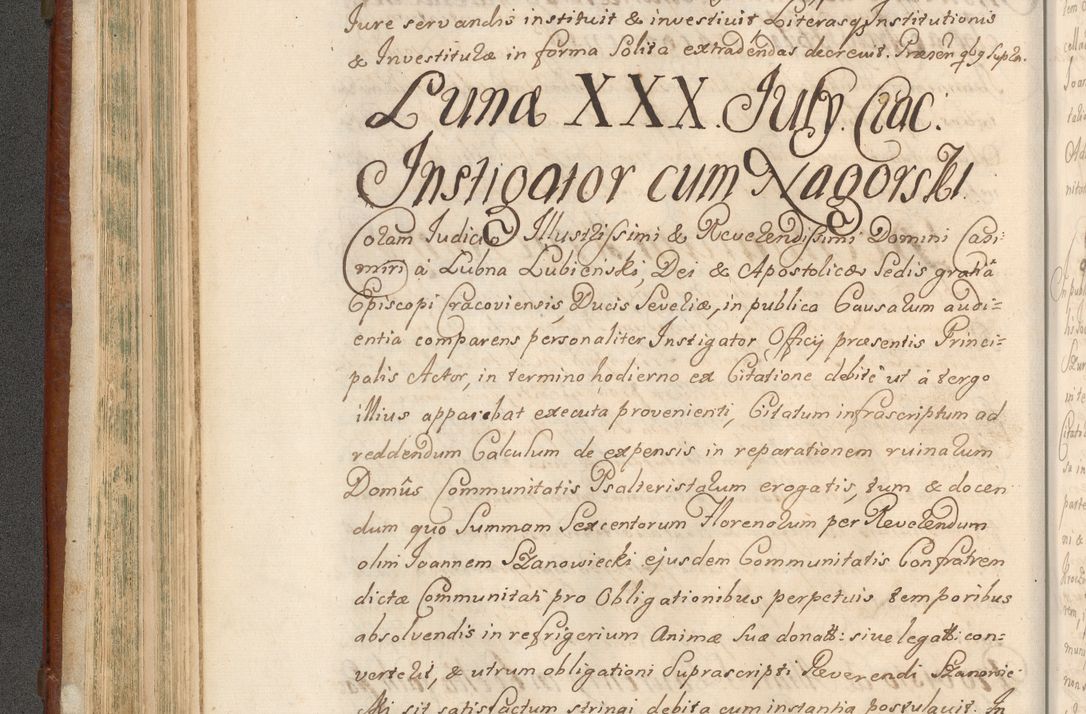 Jure servandis instituit & investivit Literasq Institutionis
& Investituræ in forma Solita extradendas decrevit. Præsen qbg Supra.
Lunæ XXX. July. Crac:
Instigator cum Nagorski
Coram Judicio Illustrissimi & Reverendissimi Domini Casi=
miri à Lubna Lubieński, Dei & Apostolicæ Sedis gratia
Episcopi Cracoviensis, Ducis Severiæ, in publica Causarum audi=
entia comparens personaliter Instigator Officij præsentis Princi=
palis Actor, in termino hodierno ex Citatione debitè ut à tergo
illius apparebat executa provenienti, Citatum infrascriptum ad
reddendum Calculum de expensis in reparationem ruinarum
Domûs Communitatis Psalteristarum erogatis, tum & docen
dum quo Summam Sexcentorum Florenorum per Reverendum
olim Joannem Szanowiecki ejusdem Communitatis Confratrem
dictæ Communitati pro Obligationibus perpetuis temporibus
absolvendis in refrigerium Animæ Suæ donatt: sive legatt: con=
verterit, & utrum obligationi Suprascripti Reverendi Szanowie
cki sit satisfactum stringi debita cum instantia postulavit. In